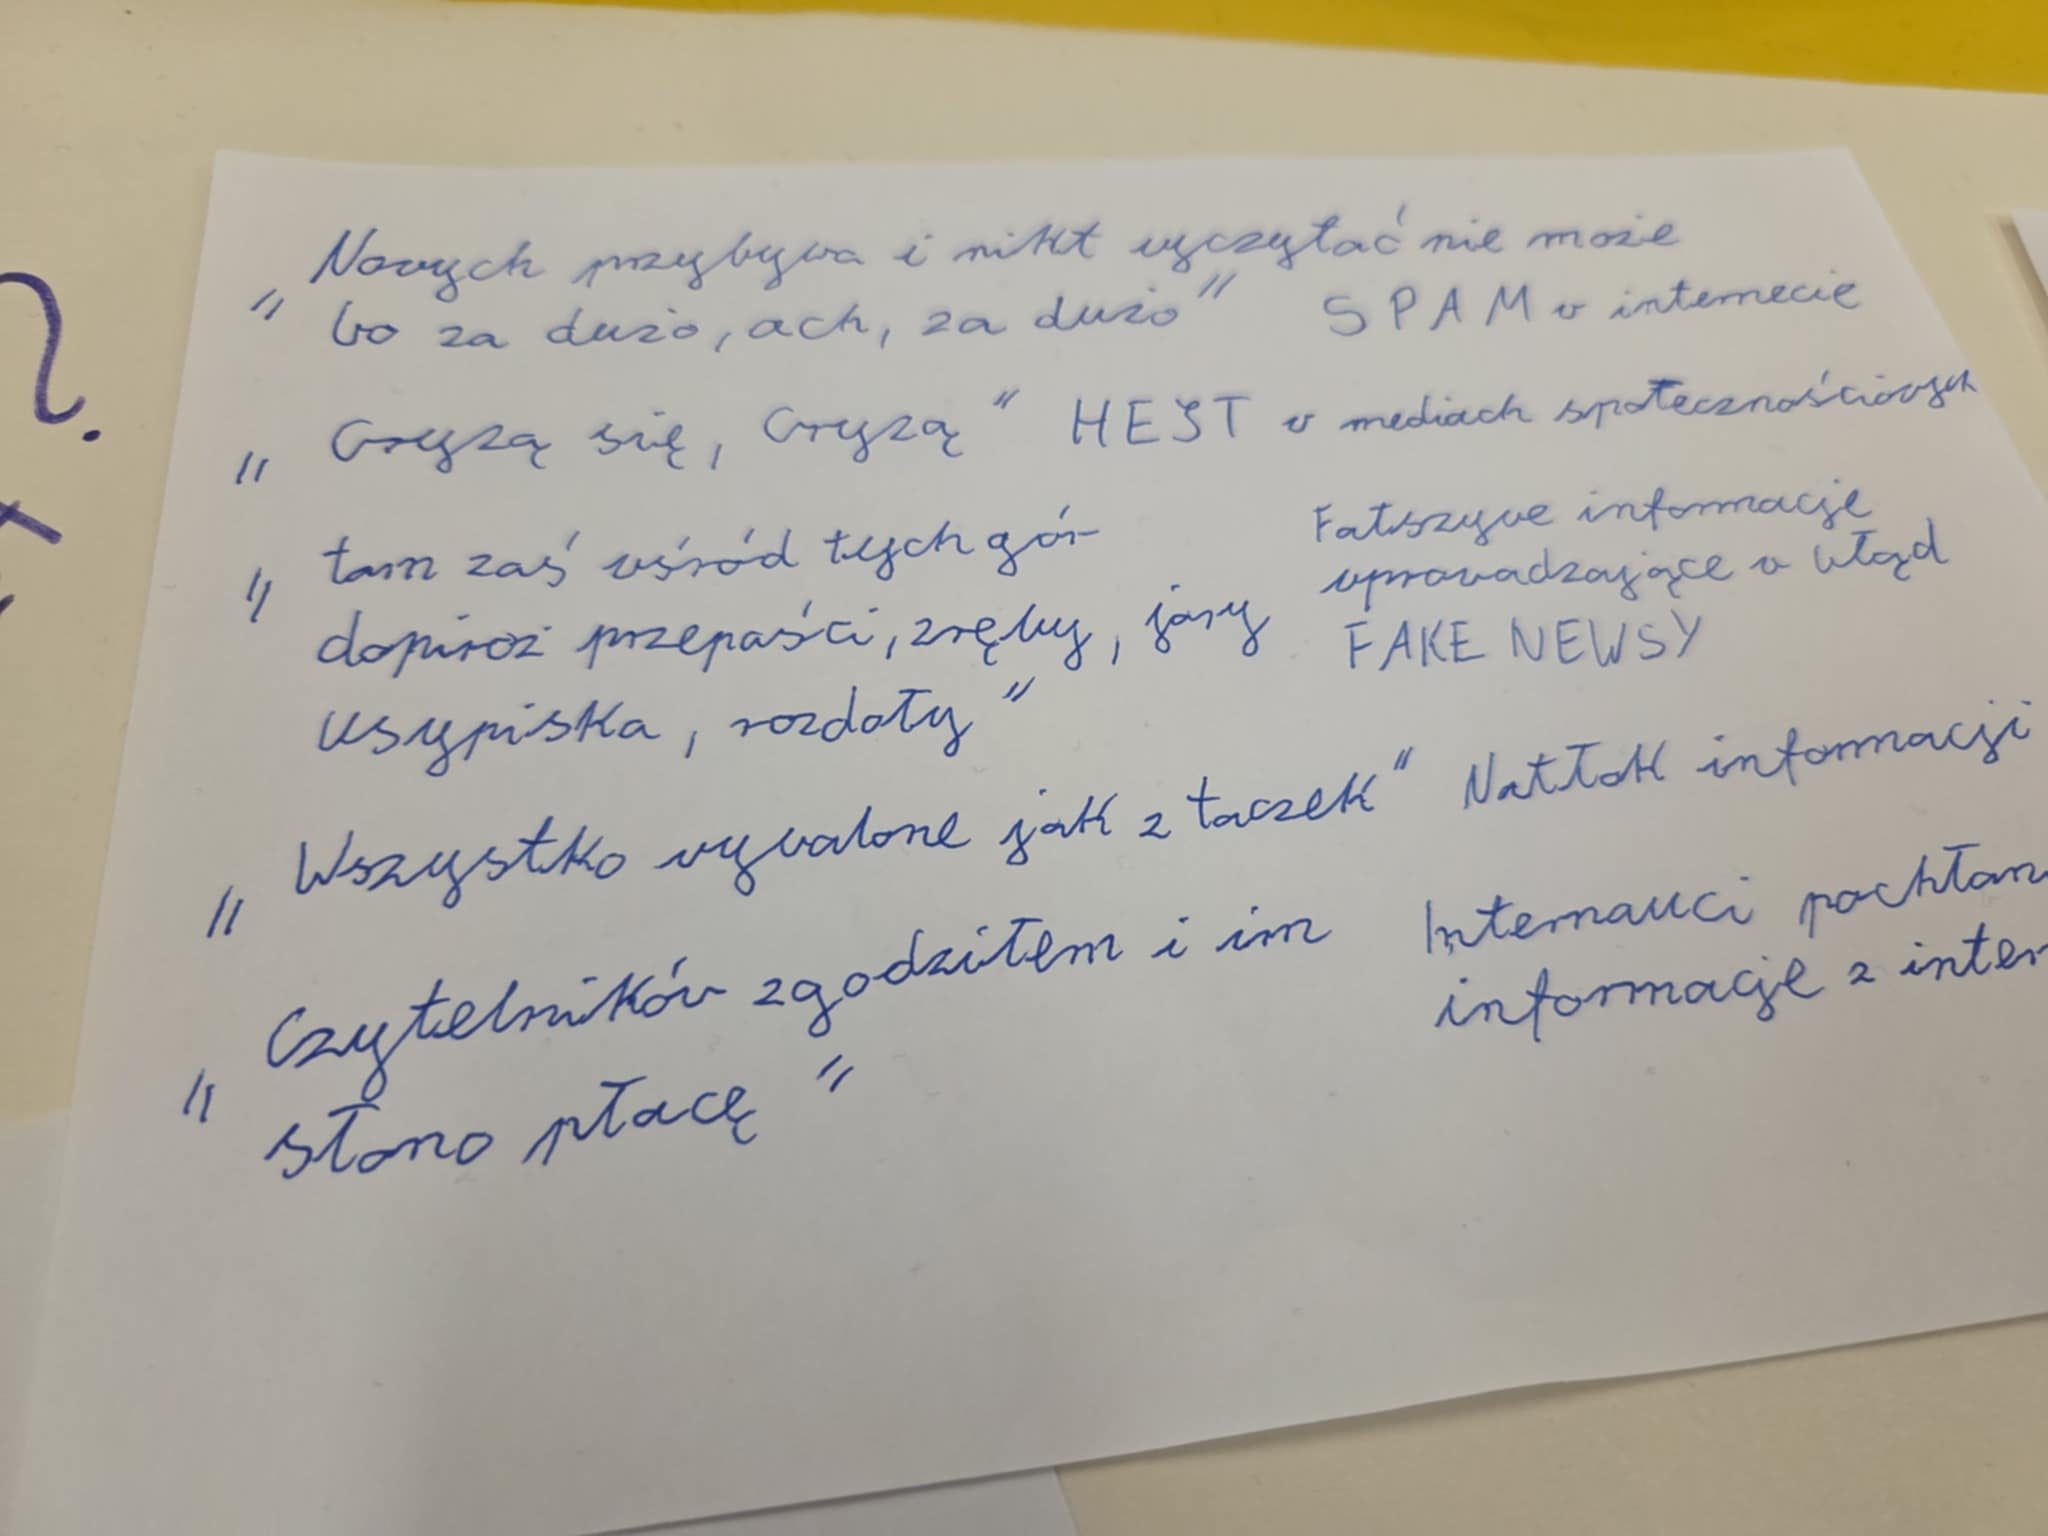 „Nowych przybywa i nikt wyczytać nie może
bo za dużo, ach, za dużo" SPAM w internecie
„Gryzą się, Gryzą" HEJT w mediach społecznościowych
„tam zaś wśród tych gór
dopiroż przepaści, zręby, jary
usypiska, rozdoły"
Fałszywe informacje
wprowadzające w błąd
FAKE NEWSY
„Wszystko wywalone jak z taczek" Natłok informacji
„Czytelników zgodziłem i im
słono płacę"
Internauci pochłan
informacje z inter